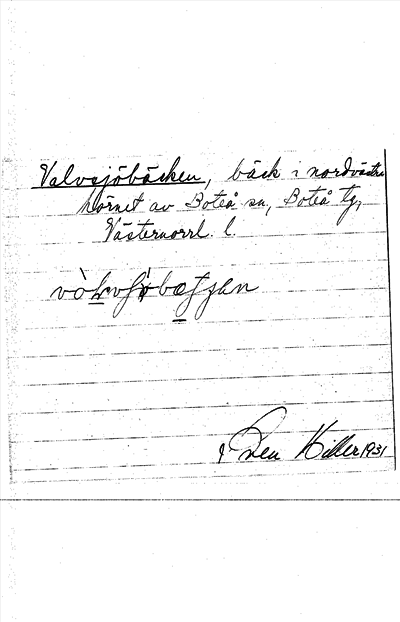 Valvsjöbäcken, bäck i nordvästra
hörnet av Boteå sn, Boteå tg,
Västernorrl. l.
Hiller 1931